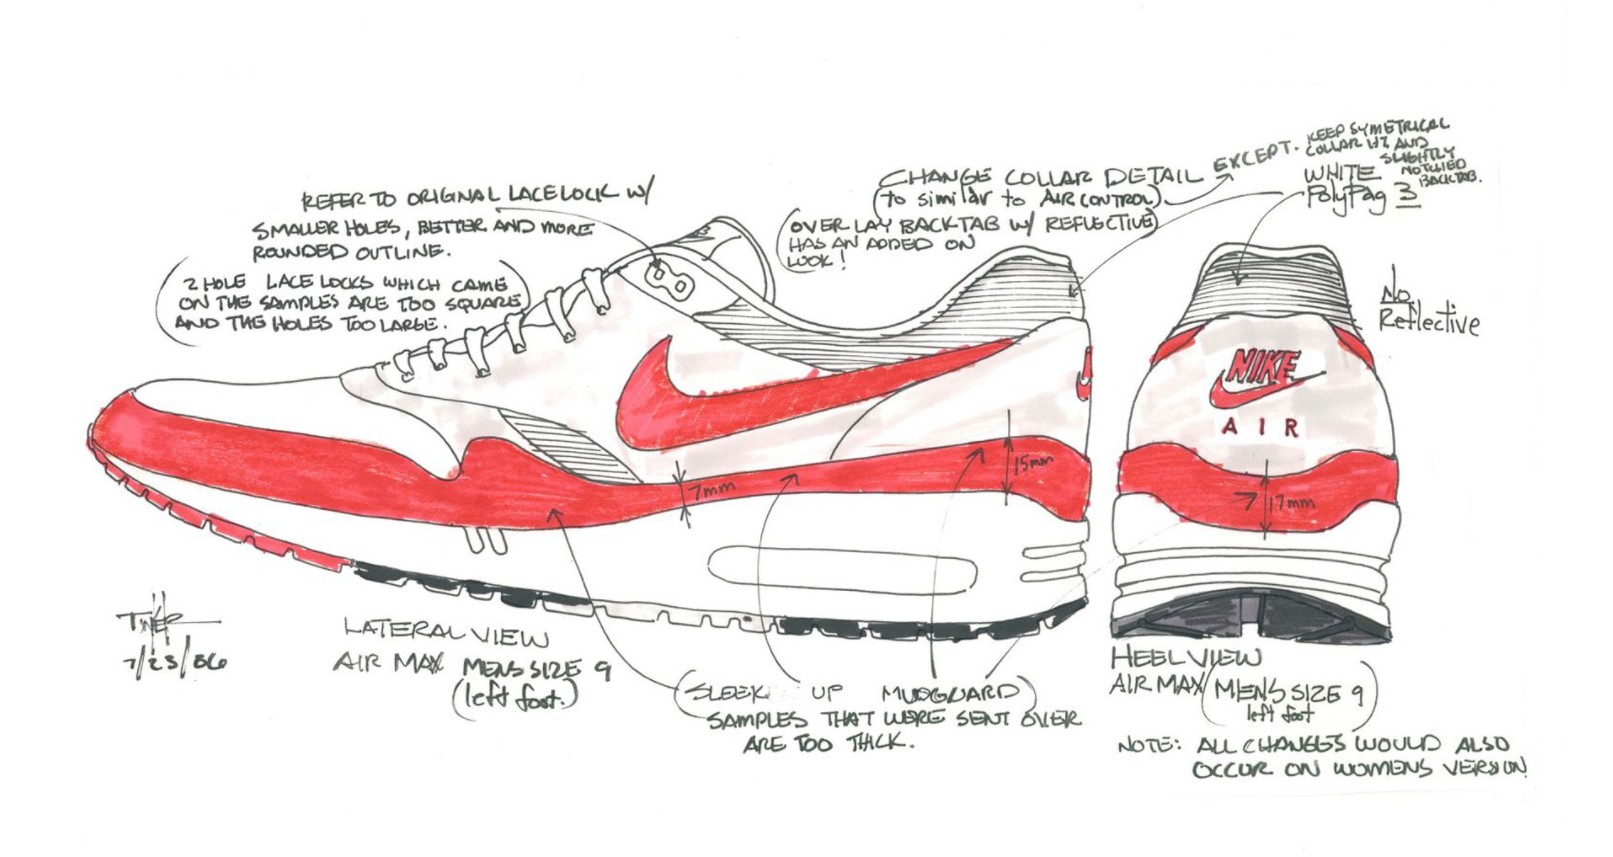 REFER TO ORIGINAL LACE LOCK W/
SMALLER HOLES, BETTER AND MORE
ROUNDED OUTLINE.
(2 HOLE LACE LOCKS WHICH CAME
ON THE SAMPLES ARE TOO SQUARE
AND THE HOLES TOO LARGE.)
CHANGE COLLAR DETAIL
(to similar to AIR CONTROL)
(OVER LAY BACKTAB W/ REFLECTIVE)
HAS AN ADDED ON
LOOK!
EXCEPT.
KEEP SYMETRICAL
COLLAR HT AND
SLIGHTLY
NOTCHED
BACKTAB.
WHITE
PolyPag 3
No
Reflective
NIKE
AIR
7mm
15mm
17mm
TINKER
7/23/86
LATERAL VIEW
AIR MAX MENS SIZE 9
(left foot.)
(SLEEK UP MUDGUARD)
SAMPLES THAT WERE SENT OVER
ARE TOO THICK.
HEEL VIEW
AIR MAX (MENS SIZE 9
left foot)
NOTE: ALL CHANGES WOULD ALSO
OCCUR ON WOMENS VERSION